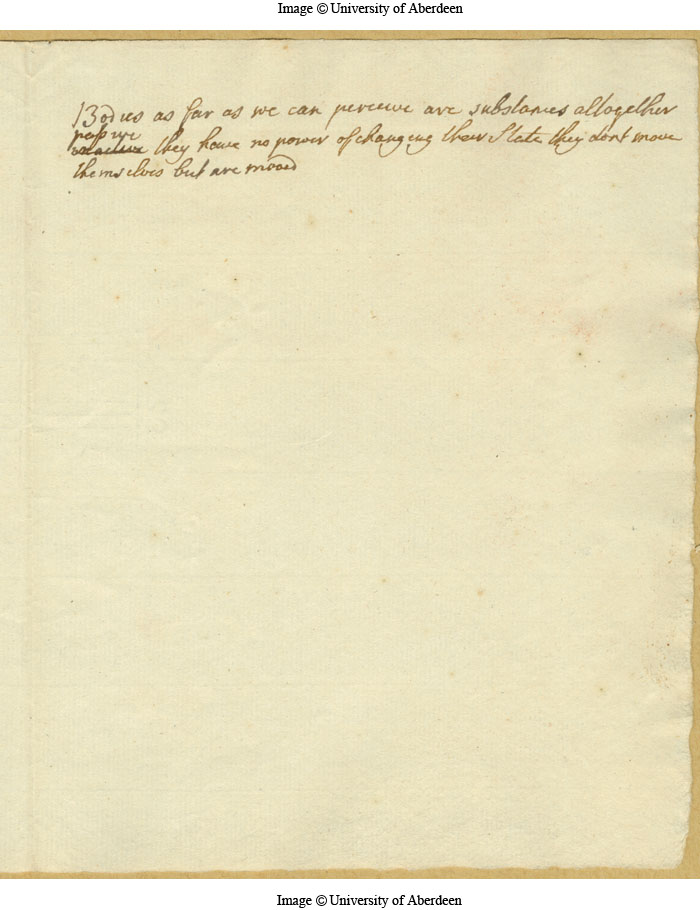 Image © University of Aberdeen
Bodies as far as we can perceive are substances altogether
passive
inactive they have no power of changing their State they dont move
themselves but are moved
Image © University of Aberdeen